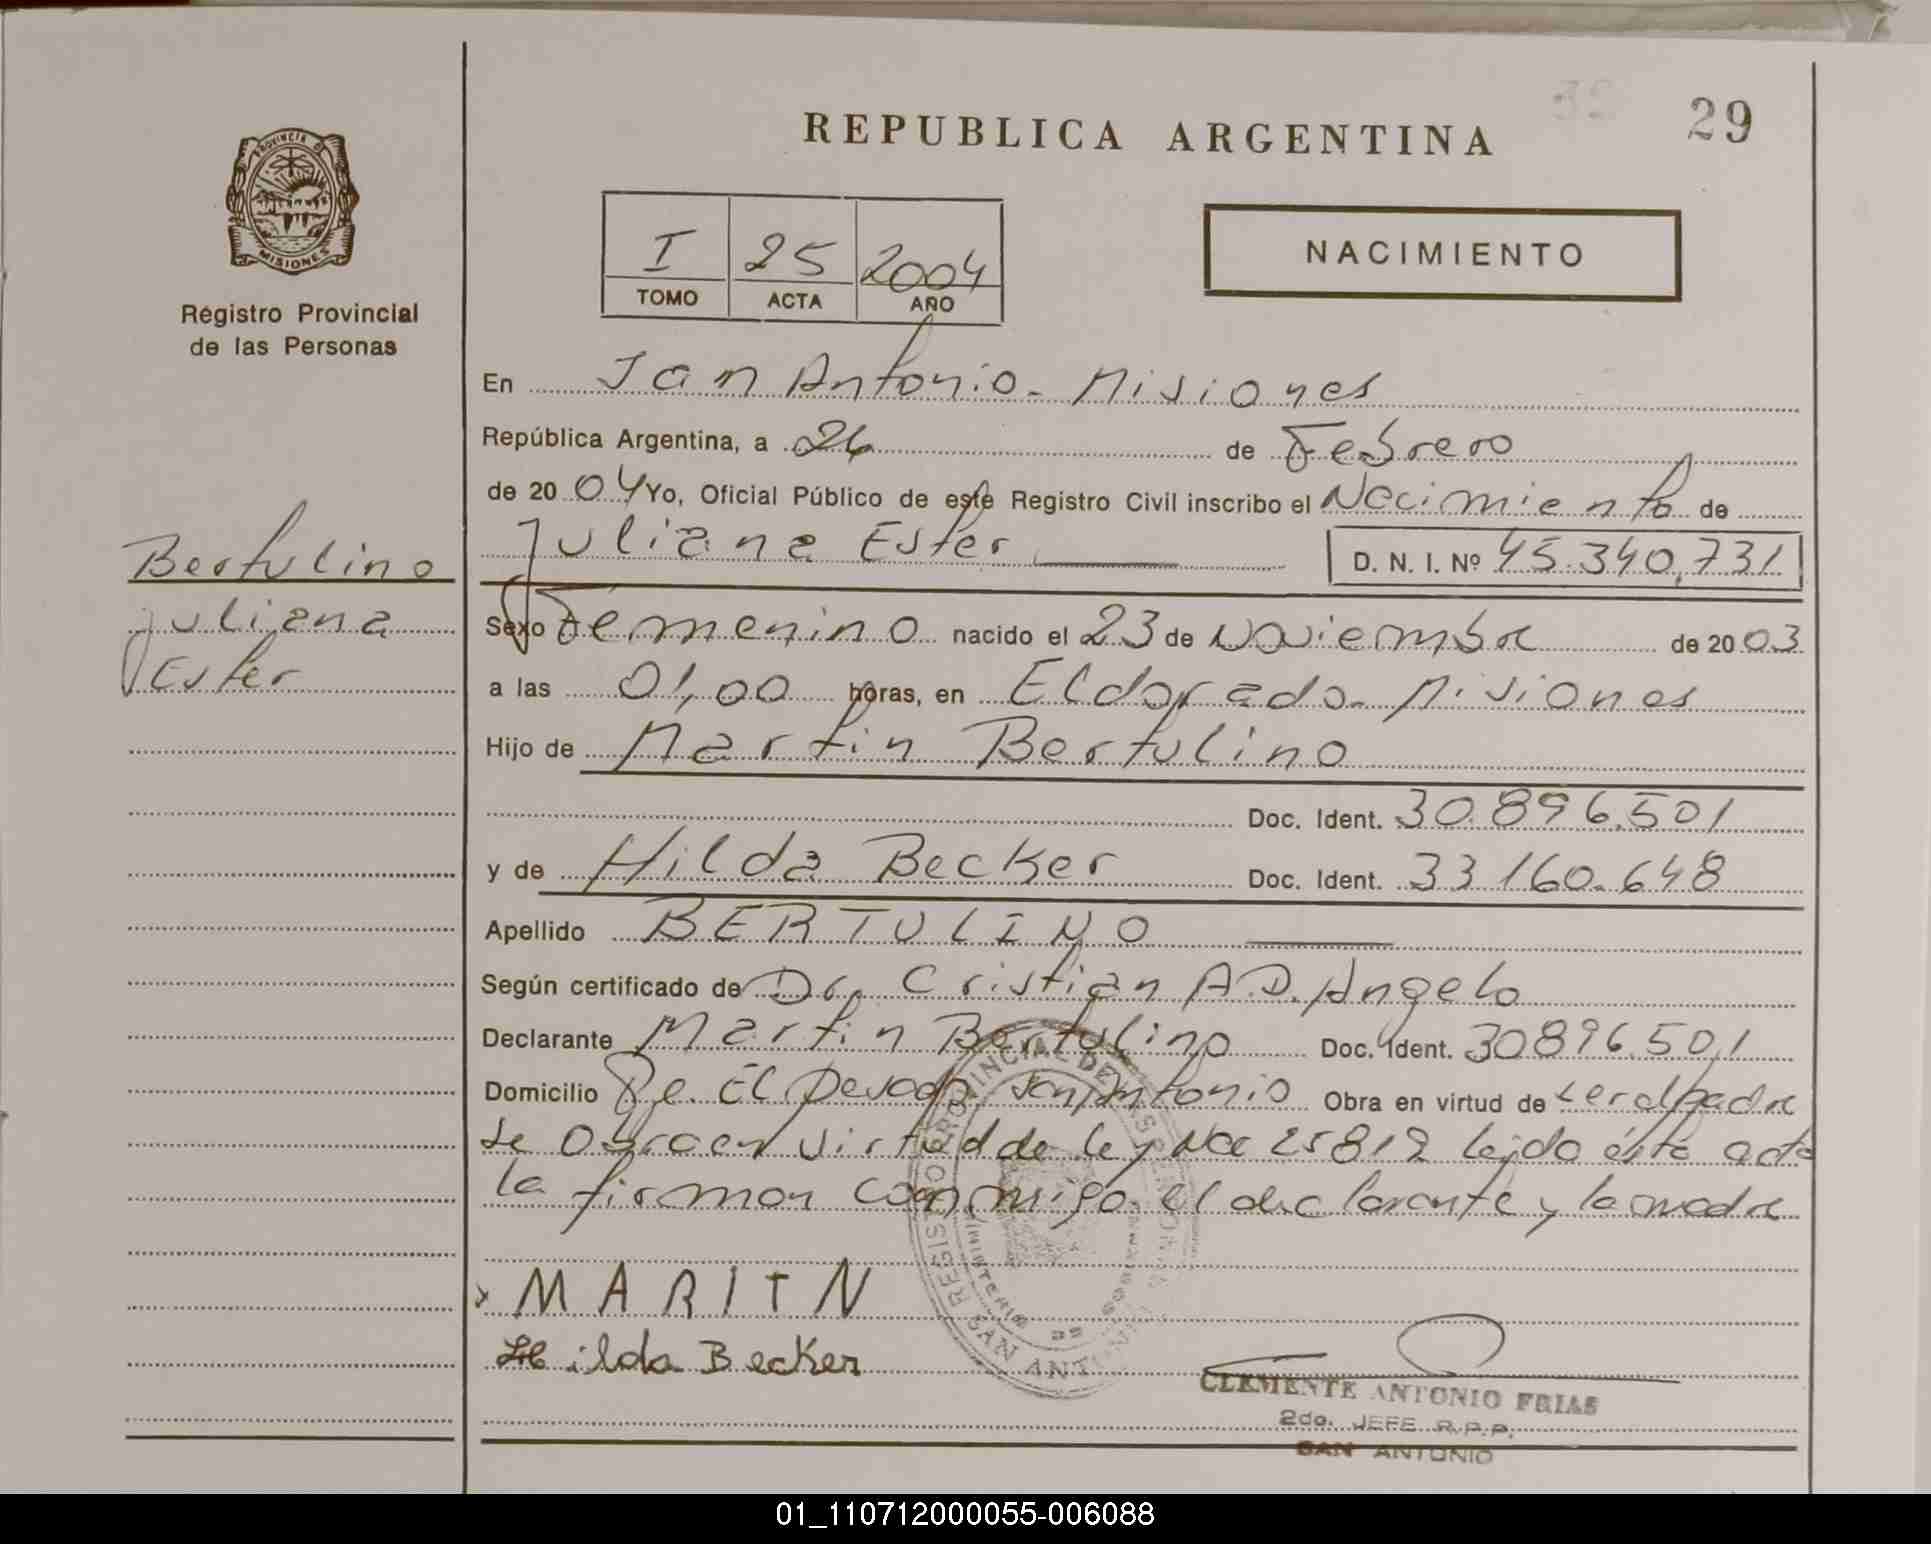 REPUBLICA ARGENTINA
29
PROVINCIA D MISIONES
Registro Provincial
de las Personas
I 25 2004
TOMO ACTA AÑO
NACIMIENTO
En San Antonio - Misiones
República Argentina, a 26 de Febrero
de 2004 Yo, Oficial Público de este Registro Civil inscribo el Nacimiento de
Juliana Ester D. N. I. Nº 45.340.731
Bertulino
Juliana
Ester
Sexo Femenino nacido el 23 de Noviembre de 2003
a las 01,00 horas, en Eldorado - Misiones
Hijo de Martin Bertulino
Doc. Ident. 30.896.501
y de Hilda Becker Doc. Ident. 33160.648
Apellido BERTULINO
Según certificado de Dr. Cristian A D. Angelo
Declarante Martin Bertulino Doc. Ident. 30896.501
Domicilio El San Antonio Obra en virtud de ser el padre
Se Obra en virtud de ley Nº 25819 leida ésta acta
la firman conmigo el declarante y la madre
MARITN
Hilda Becker
PROVINCIAL DE SAN ANTONIO MINISTERIO DE
CLEMENTE ANTONIO FRIAS
2do. JEFE R.P.P.
SAN ANTONIO
01_110712000055-006088